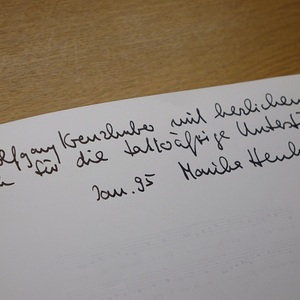 olfgang Kreuzhuber mit herzlichem
n für die tatkräftige Unterstü
Jan. 95 Monika Henl